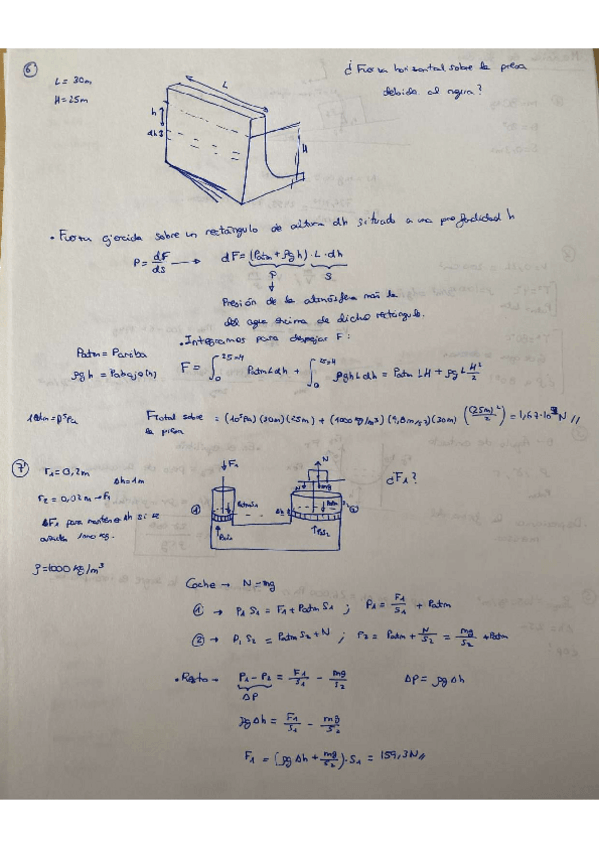 6
L = 30m
H = 25m
¿Fuerza horizontal sobre la presa
debida al agua?
L
h
dh
H
• Fuerza ejercida sobre un rectángulo de altura dh situado a una profundidad h
P = dF/ds → dF = (Patm + ρgh) · L · dh
P S
Presión de la atmósfera más la
del agua encima de dicho rectángulo.
• Integramos para despejar F:
Patm = Parriba
ρgh = Pabajo(h)
F = ∫₀^25=H Patm L dh + ∫₀^25=H ρgh L dh = Patm LH + ρg L H²/2
1atm = 10⁵Pa
Ftotal sobre la presa = (10⁵Pa)(30m)(25m) + (1000kg/m³)(9,8m/s²)(30m) ((25m)²/2) = 1,67·10⁸N //
7
r1 = 0,2m
Δh = 1m
ΔF1 para mantener Δh si se
1000 kg.
ρ = 1000 kg/m³
F1
N
N
mg
¿F1?
1
Δh
2
Coche → N = mg
1 → P1 S1 = F1 + Patm S1 ; P1 = F1/S1 + Patm
2 → P, S2 = Patm S2 + N ; P2 = Patm + N/S2 = mg/S2 + Patm
• Resto → P1 - P2 = F1/S1 - mg/S2 ΔP = ρgΔh
ΔP
ρgΔh = F1/S1 - mg/S2
F1 = (ρgΔh + mg/S2) · S1 = 159,3N //